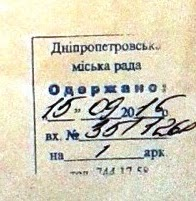 Дніпропетровська
міська рада
Одержано:
15 09 2016
вх. № 35/1260
на 1 арк.
тел. 744 17 58